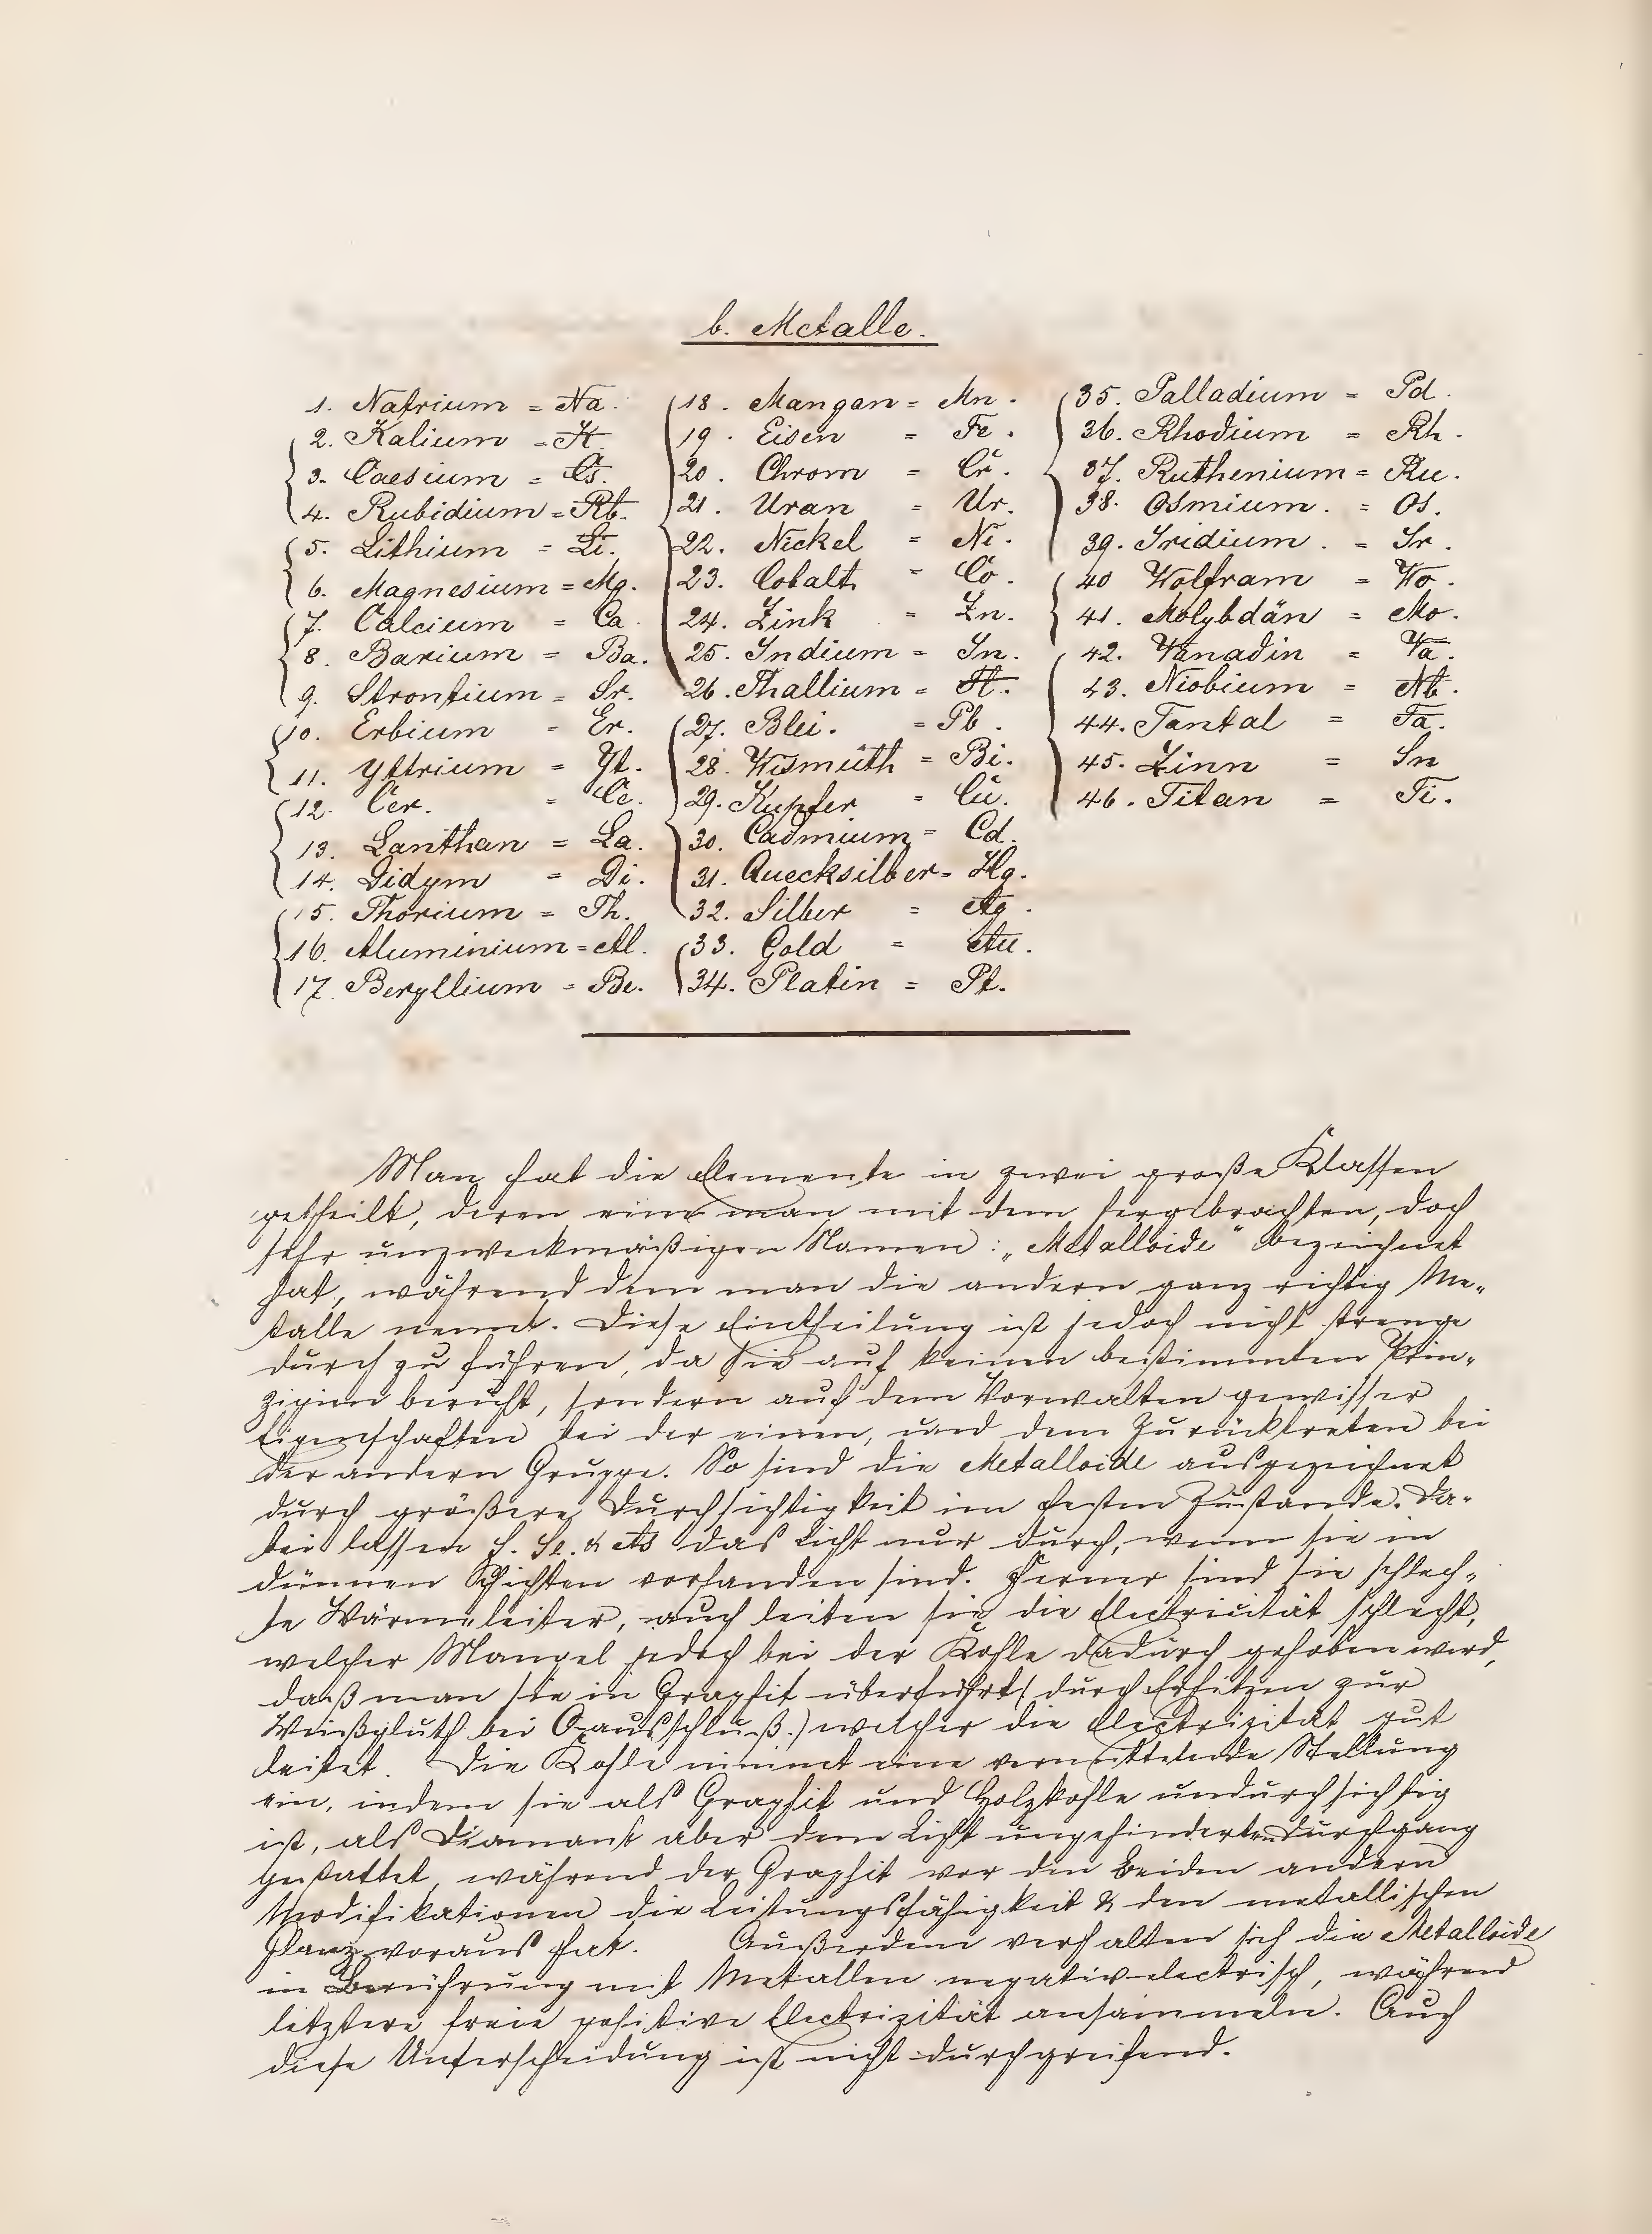 b. Metalle.
1. Natrium = Na.
2. Kalium = K.
3. Caesium = Cs.
4. Rubidium = Rb.
5. Lithium = Li.
6. Magnesium = Mg.
7. Calcium = Ca.
8. Barium = Ba.
9. Strontium = Sr.
10. Erbium = Er.
11. Yttrium = Yt.
12. Cer. = Ce.
13. Lanthan = La.
14. Didym = Di.
15. Thorium = Th.
16. Aluminium = Al.
17. Beryllium = Be.
18. Mangan = Mn.
19. Eisen = Fe.
20. Chrom = Cr.
21. Uran = Ur.
22. Nickel = Ni.
23. Cobalt = Co.
24. Zink = Zn.
25. Indium = In.
26. Thallium = Tl.
27. Blei. = Pb.
28. Wismuth = Bi.
29. Kupfer = Cu.
30. Cadmium = Cd.
31. Quecksilber = Hg.
32. Silber = Ag.
33. Gold = Au.
34. Platin = Pt.
35. Palladium = Pd.
36. Rhodium = Rh.
37. Ruthenium = Ru.
38. Osmium. = Os.
39. Iridium. = Ir.
40 Wolfram = Wo.
41. Molybdän = Mo.
42. Vanadin = Va.
43. Niobium = Nb.
44. Tantal = Ta.
45. Zinn = Sn
46. Titan = Ti.
Man hat die Elemente in zwei große Klassen
getheilt, deren eine man mit dem hergebrachten, doch
sehr unzweckmäßigen Namen: „Metalloide" bezeichnet
hat, während dem man die andern ganz richtig Me-
talle nennt. Diese Eintheilung ist jedoch nicht strenge
durch zu führen, da sie auf keinen bestimmten Prin-
zipien beruht, sondern auf dem Vorwalten gewisser
Eigenschaften bei der einen, und dem Zurücktreten bei
der andern Gruppe. So sind die Metalloide ausgezeichnet
durch größere Durchsichtigkeit im festen Zustande. Da-
bei lassen S. Se. & As das Licht nur durch, wenn sie in
dünnen Schichten vorhanden sind. Ferner sind sie schlech-
te Wärmeleiter, auch leiten sie die Electricität schlecht,
welcher Mangel jedoch bei der Kohle dadurch gehoben wird,
daß man sie in Graphit überführt (durch Erhitzen zur
Weißgluth bei O=ausschluß.) welcher die Electrizität gut
leitet. Die Kohle nimmt eine vermittelnde Stellung
ein, indem sie als Graphit und Holzkohle undurchsichtig
ist, als Diamant aber dem Licht ungehinderten Durchgang
gestattet, während der Graphit vor den beiden andern
Modifikationen die Leitungsfähigkeit & den metallischen
Glanz voraus hat. Außerdem verhalten sich die Metalloide
in Berührung mit Metallen negativ electrisch, während
letztere freie positive Electrizität ansammeln. Auch
diese Unterscheidung ist nicht durchgreifend.